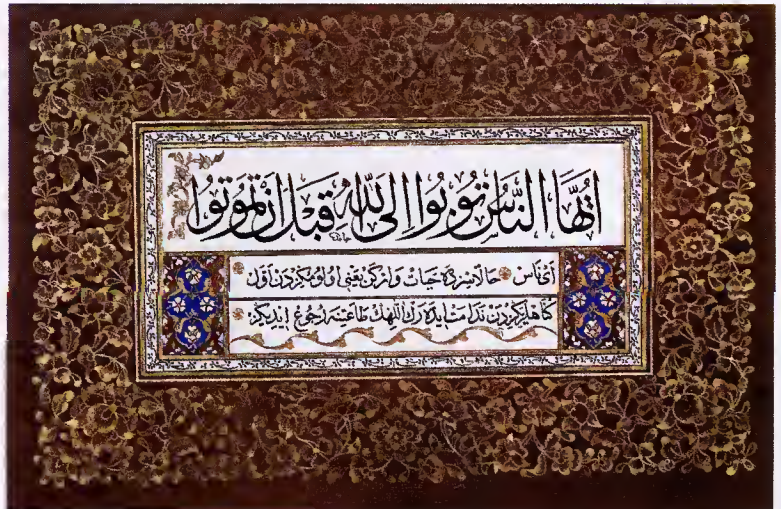 اَيُّهَا النَّاسُ تُوبُوا اِلَى اللّٰهِ قَبْلَ اَنْ تَمُوتُوا
اى ناس حالا سزده حيات واركن يعنى اولومكزدن اول
كناهلريكزدن ندامت ايده رك اللهك طاعتنه رجوع ايديكز